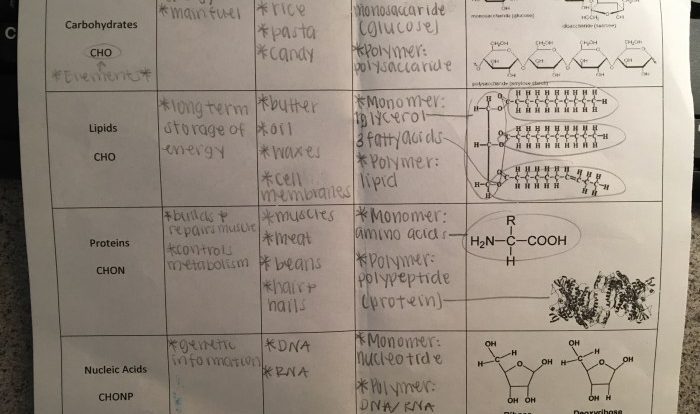 Carbohydrates
CHO
*Elements*
*main fuel
*rice
*pasta
*candy
monosaccaride
(glucose)
*Polymer:
polysaccaride
monosaccharide (glucose)
disaccharide (sucrose)
polysaccharide (amylose starch)
Lipids
CHO
*long term
storage of
energy
*butter
*oil
*waxes
*cell
membranes
*Monomer:
1 glycerol
3 fatty acids
*Polymer:
lipid
Proteins
CHON
*builds +
repairs muscle
*controls
metabolism
*muscles
*meat
*beans
*hair +
nails
*Monomer:
amino acids
*Polymer:
polypeptide
(protein)
R
H₂N—C—COOH
H
Nucleic Acids
CHONP
*genetic
information
*DNA
*RNA
*Monomer:
nucleotide
*Polymer:
DNA/RNA
OH
H
O
OH
OH OH
OH
H
O
OH
OH H
Ribose
Deoxyribose